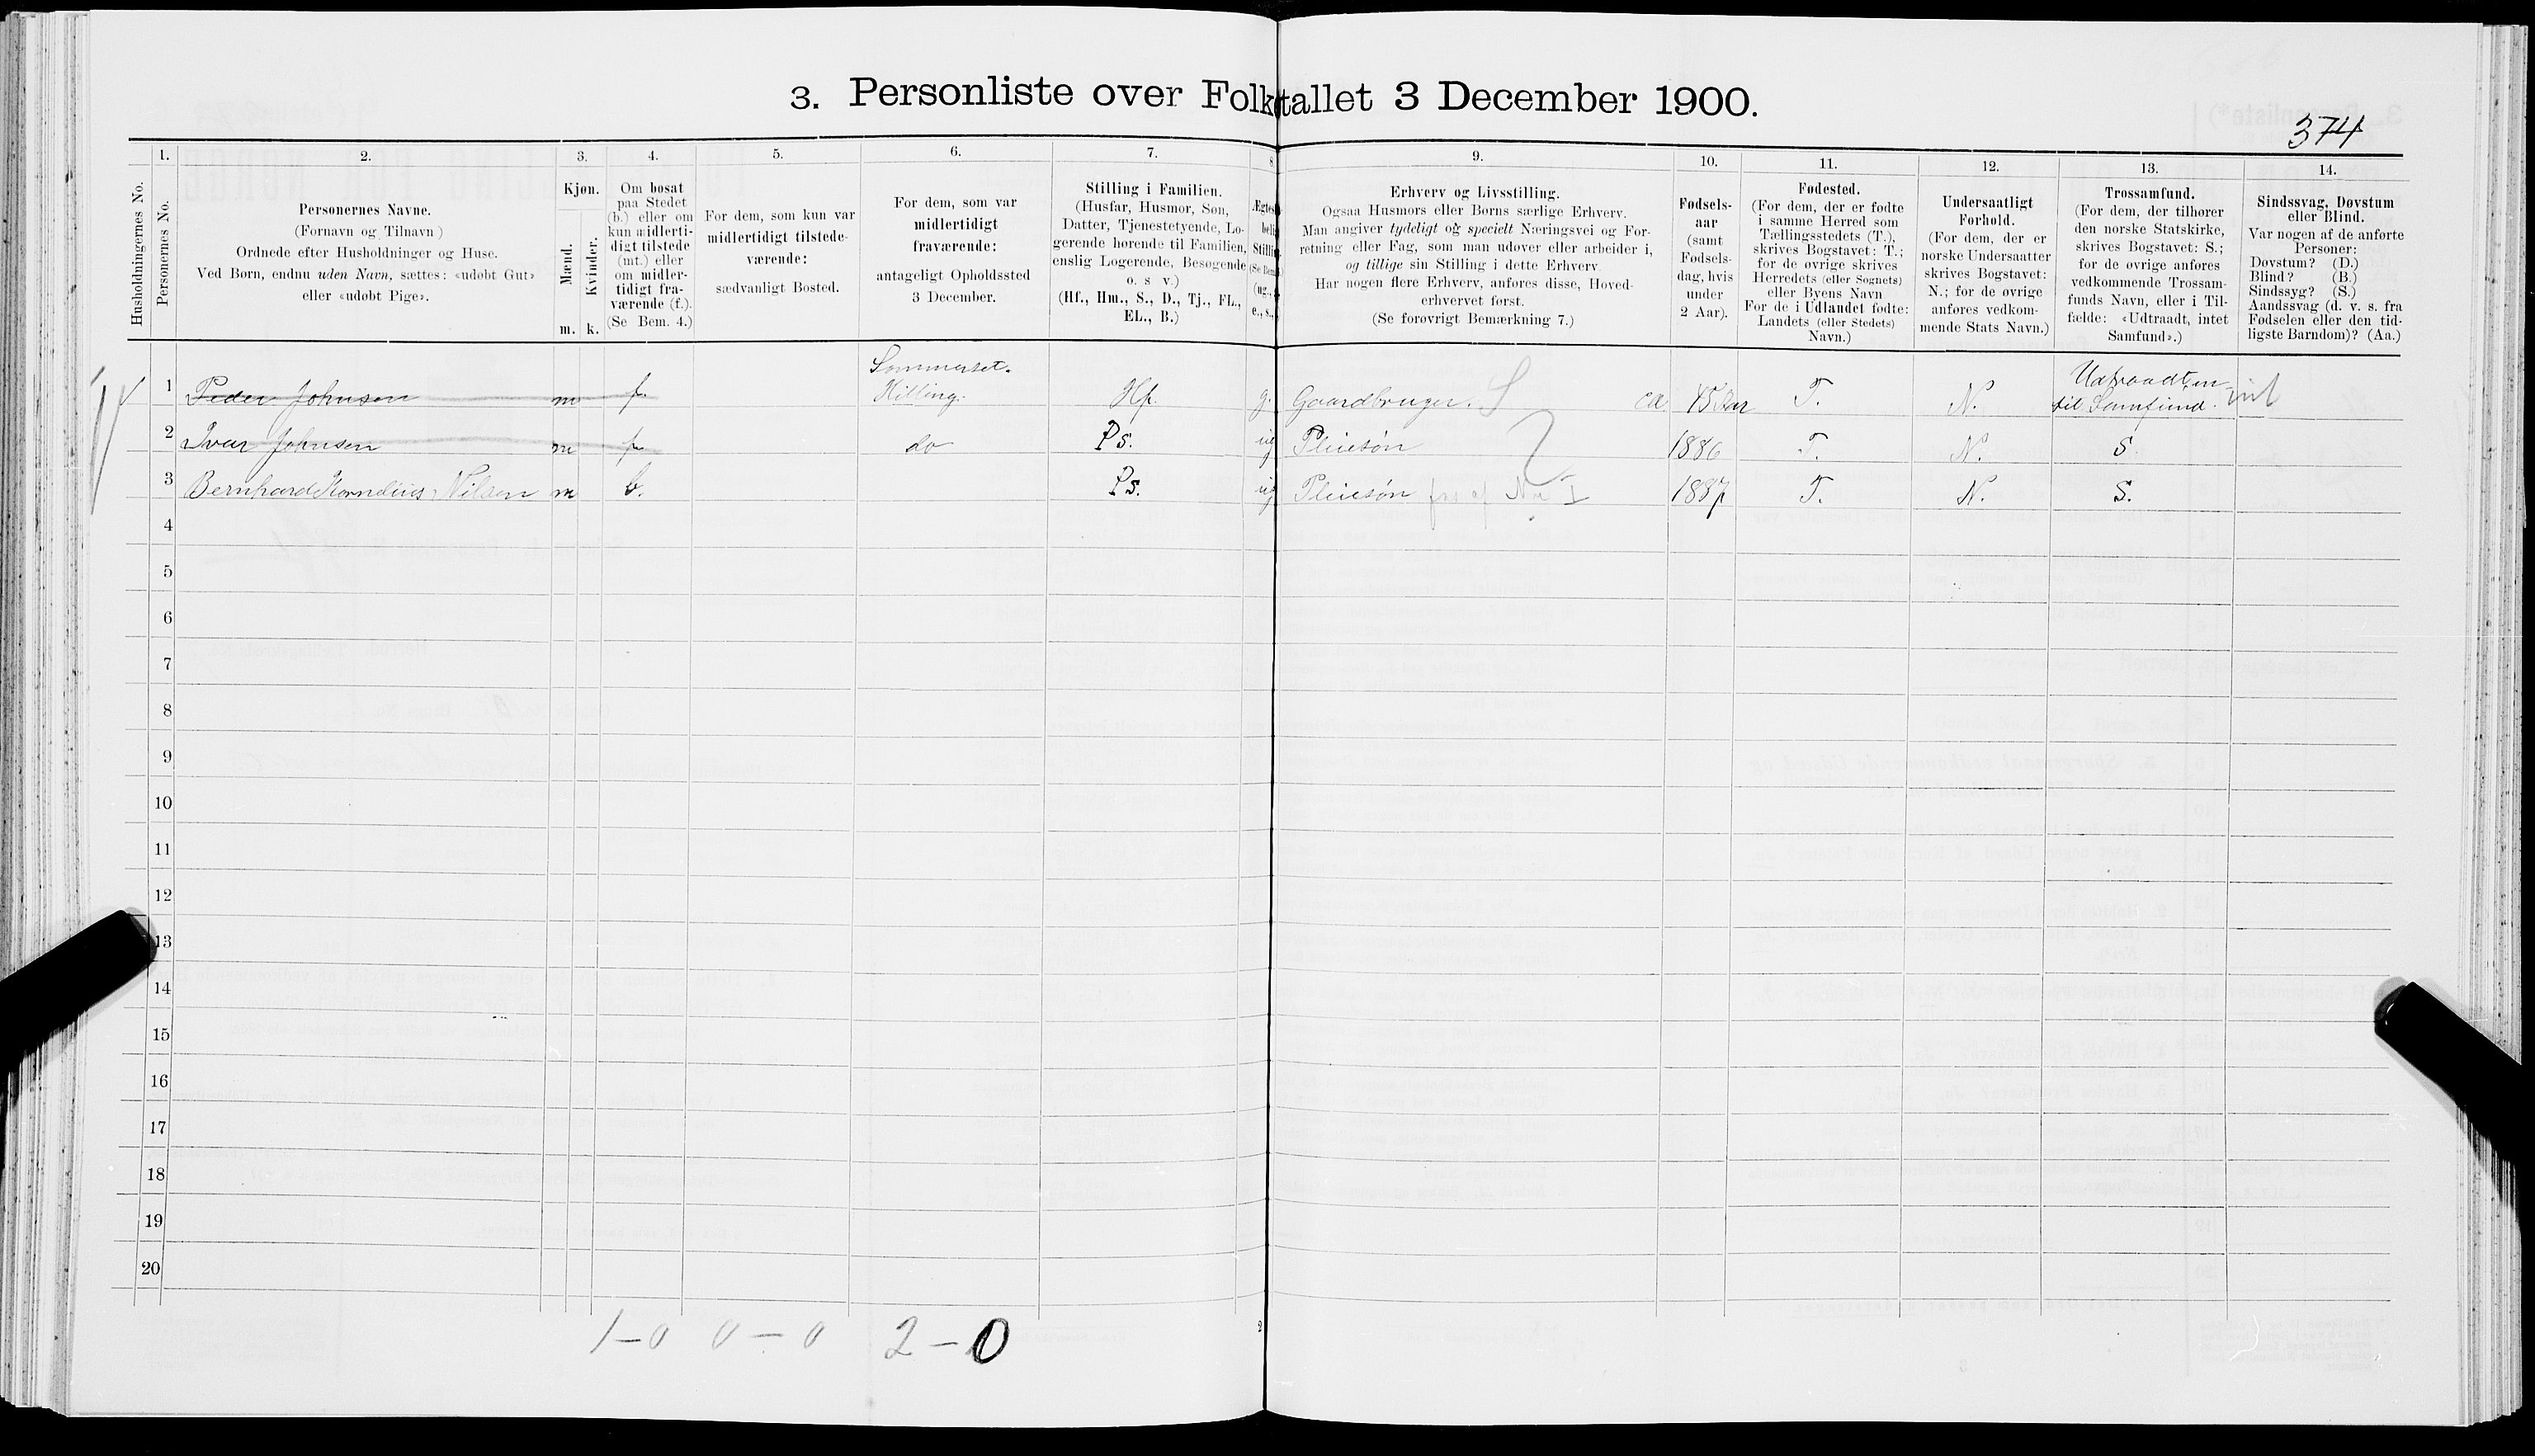 3. Personliste over Folketallet 3 December 1900.
374
Husholdningernes No.
1.
Personernes No.
2.
Personernes Navne.
(Fornavn og Tilnavn)
Ordnede efter Husholdninger og Huse.
Ved Børn, endnu uden Navn, sættes: «udøbt Gut»
eller «udøbt Pige».
3.
Kjøn.
Mænd.
Kvinder.
m. k.
4.
Om bosat
paa Stedet
(b.) eller om
kun midlerti-
digt tilstede
(mt.) eller
om midler-
tidigt fra-
værende (f.).
(Se Bem. 4.)
5.
For dem, som kun var
midlertidigt tilstede-
værende:
sædvanligt Bosted.
6.
For dem, som var
midlertidigt
fraværende:
antageligt Opholdssted
3 December.
7.
Stilling i Familien.
(Husfar, Husmor, Søn,
Datter, Tjenestetyende, Lo-
gerende hørende til Familien,
enslig Logerende, Besøgende
o. s v.)
(Hf., Hm., S., D., Tj., FL.,
EL., B.)
8
9.
Erhverv og Livsstilling.
Ogsaa Husmors eller Børns særlige Erhverv.
Man angiver tydeligt og specielt Næringsvei og For-
retning eller Fag, som man udøver eller arbeider i,
og tillige sin Stilling i dette Erhverv.
Har nogen flere Erhverv, anføres disse, Hoved-
erhvervet først.
(Se forøvrigt Bemærkning 7.)
10.
Fødsels-
aar
(samt
Fødsels-
dag, hvis
under
2 Aar).
11.
Fødested.
(For dem, der er fødte
i samme Herred som
Tællingsstedets (T.),
skrives Bogstavet: T.;
for de øvrige skrives
Herredets (eller Sognets)
eller Byens Navn
For de i Udlandet fødte:
Landets (eller Stedets)
Navn.)
12.
Undersaatligt
Forhold.
(For dem, der er
norske Undersaatter
skrives Bogstavet:
N.; for de øvrige
anføres vedkom-
mende Stats Navn.)
13.
Trossamfund.
(For dem, der tilhører
den norske Statskirke,
skrives Bogstavet: S.;
for de øvrige anføres
vedkommende Trossam-
funds Navn, eller i Til-
fælde: «Udtraadt, intet
Samfund».)
14.
Sindssvag, Døvstum
eller Blind.
Var nogen af de anførte
Personer:
Døvstum? (D.)
Blind? (B.)
Sindssyg? (S.)
Aandssvag (d. v. s. fra
Fødselen eller den tid-
ligste Barndom)? (Aa.)
1 Peder Johnsen m f. Sommerset. Hilling. Hf. g. Gaardbruger. ca 45 Aar T. N. til Samfund.
2 Ivar Johnsen m f do Ps. ug Pleiesøn 1886 T. N. S.
3 Bernhard Kornelius Nilsen m b. Ps. ug Pleiesøn 1887 T. N. S.
4
5
6
7
8
9
10
11
12
13
14
15
16
17
18
19
20
1-0 0-0 2-0
2